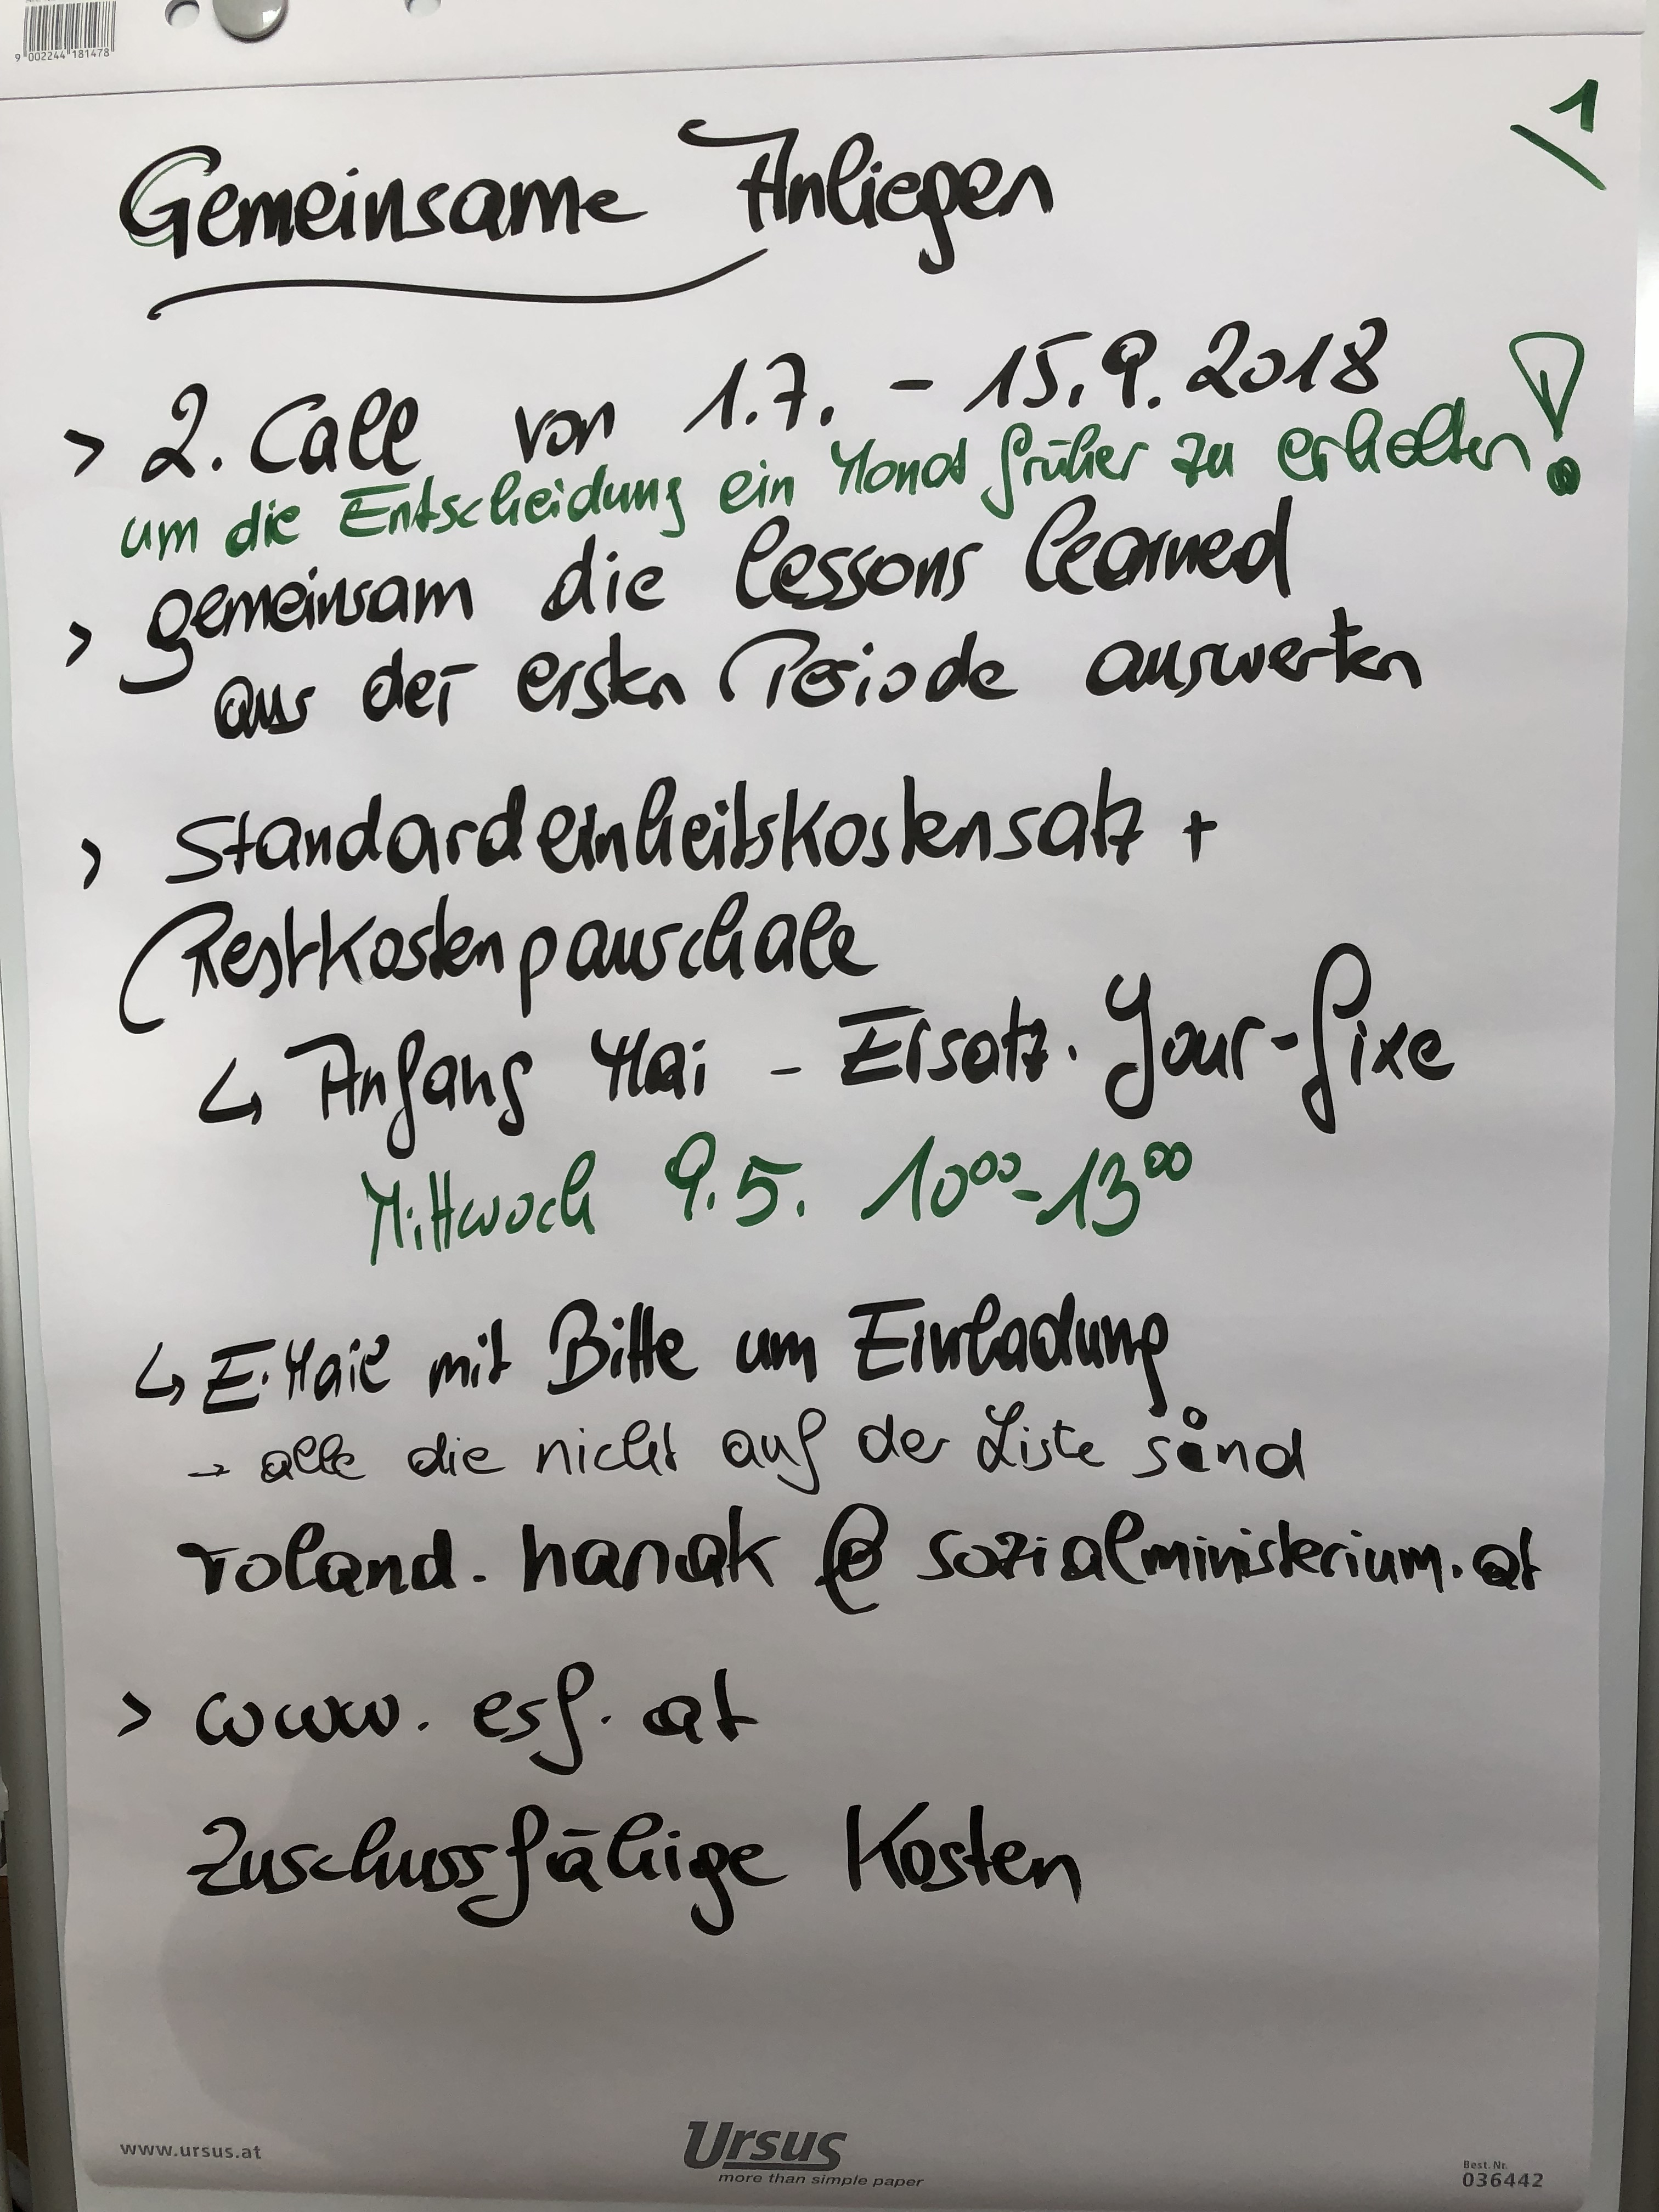 9 002244 181478
1
Gemeinsame Anliegen
> 2. Call von 1.7. - 15.9. 2018
um die Entscheidung ein Monat früher zu erhalten!
> gemeinsam die lessons learned
aus der ersten Periode auswerten
> Standardeinheitskostensatz +
Restkostenpauschale
↳ Anfang Mai - Ersatz. Jour-fixe
Mittwoch 9.5. 10⁰⁰-13⁰⁰
↳ E-Mail mit Bitte um Einladung
→ alle die nicht auf der Liste sind
roland.hanak@sozialministerium.at
> www.esf.at
Zuschussfähige Kosten
www.ursus.at
Ursus
more than simple paper
Best. Nr.
036442